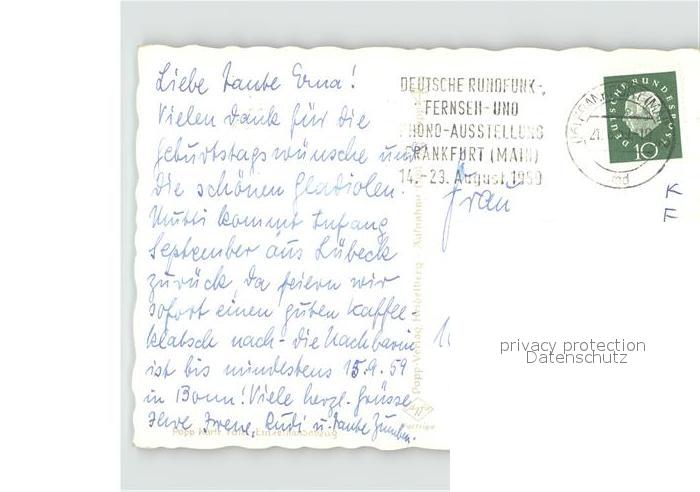 Liebe Tante Erna!
Vielen Dank für die
Geburtstagswünsche und
die schönen Gladiolen!
Mutti kommt Anfang
September aus Lübeck
zurück, da feiern wir
sofort einen guten Kaffee-
klatsch nach - die Nachbarin
ist bis mindestens 15.9.59
in Bonn! Viele herzl. Grüsse
Ihre Irene, Rudi u. Tante
DEUTSCHE RUNDFUNK-,
FERNSEH- UND
PHONO-AUSSTELLUNG
FRANKFURT (MAIN)
14.-23. August 1959
DEUTSCHE BUNDESPOST
10
md
Frau
K
F
Popp-Verlag Heidelberg
privacy protection
Datenschutz